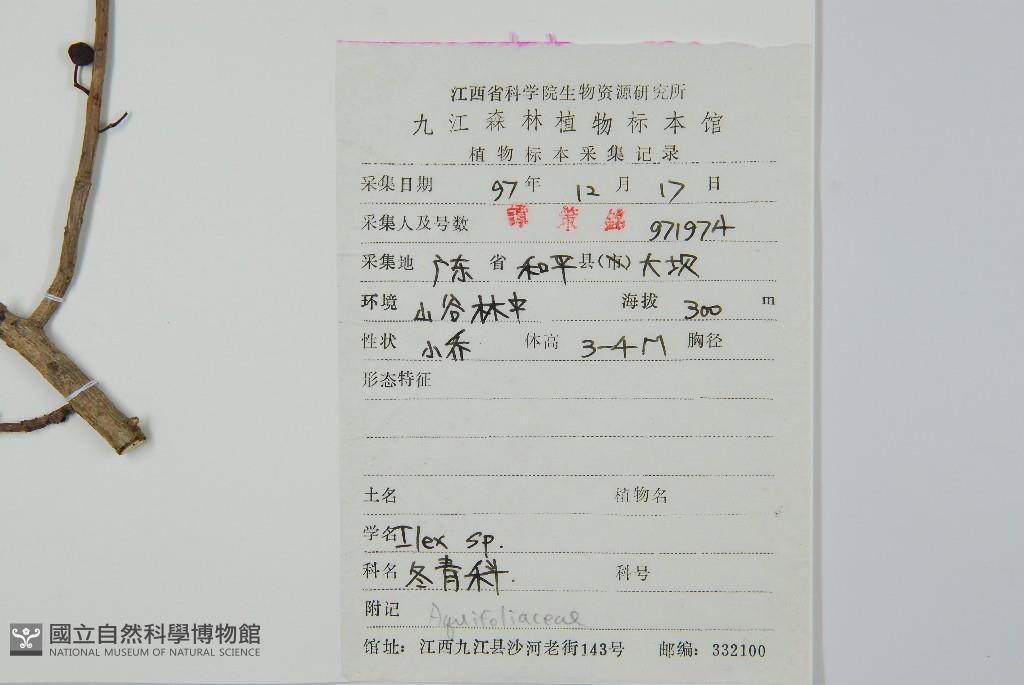 江西省科学院生物资源研究所
九江森林植物标本馆
植物标本采集记录
采集日期 97年 12月 17日
采集人及号数 譚策銘 971974
采集地 广东省 和平县(市) 大坝
环境 山谷林中 海拔 300 m
性状 小乔 体高 3-4M 胸径
形态特征
土名 植物名
学名 Ilex sp.
科名 冬青科. 科号
附记 Aquifoliaceae
馆址: 江西九江县沙河老街143号 邮编: 332100
國立自然科學博物館
NATIONAL MUSEUM OF NATURAL SCIENCE